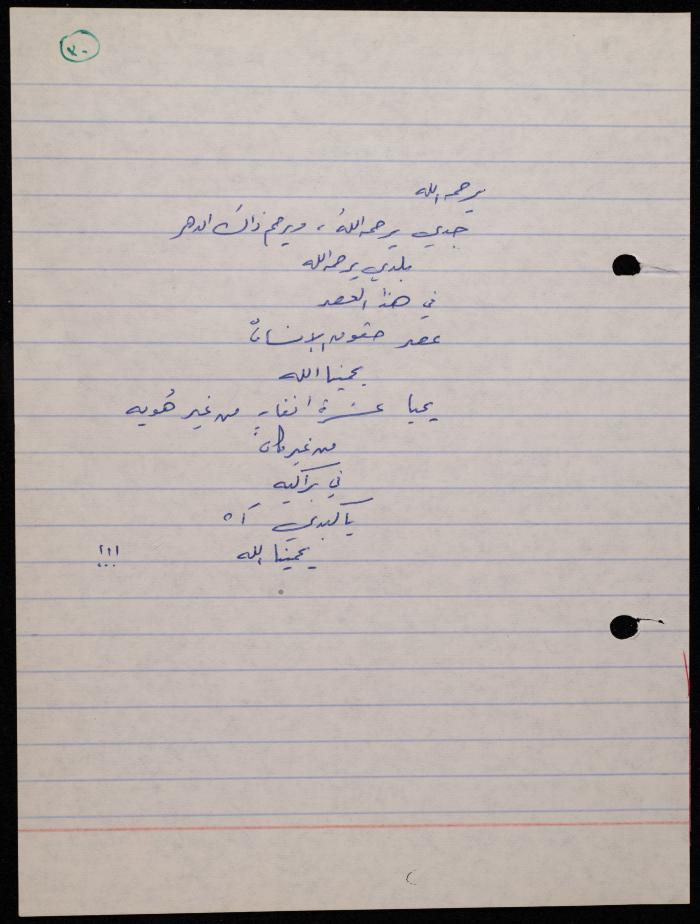 ٢٠
يرحمه الله
جدي يرحمه اللهُ، ويرحم ذاك الدهر
بلدي يرحمه الله
في هذا العصر
عصر حقوق الإنسان
يحمينا الله
يحيا عشرة أنفار من غير هُويه
من غير مكان
في براكيه
يا كبدي آه
يحمينا الله !!!